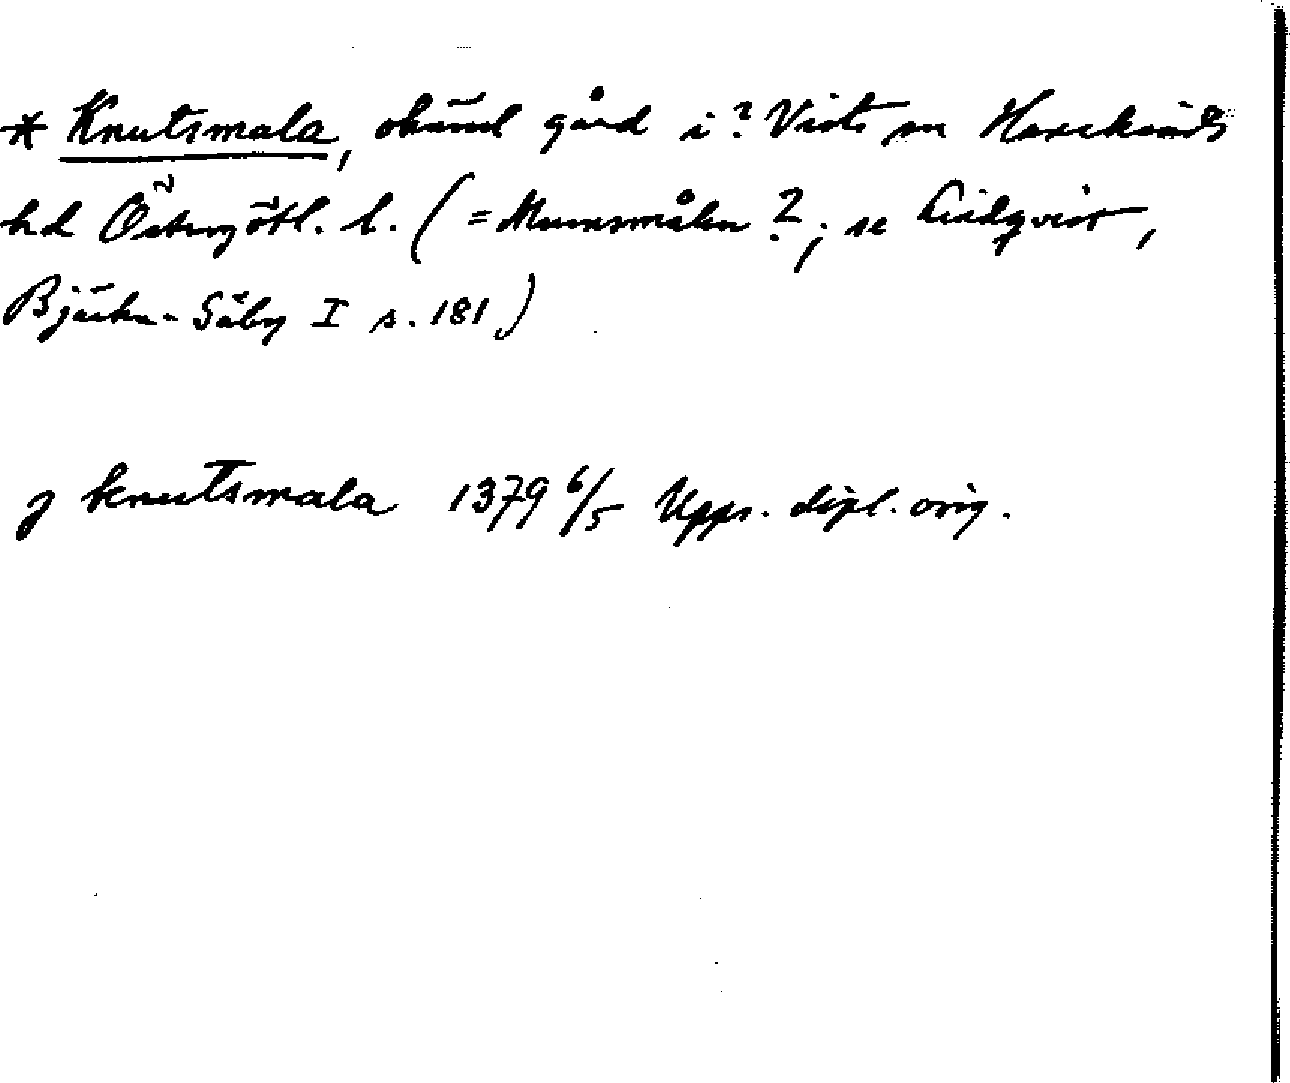 * Knutsmala, okänd gård i? Vists sn Hanekinds
hd Östergötl. l. (= Munsmålen ?; se Lindqvist,
Bjärka-Säby I s. 181)
j knutsmala 1379 6/5 Upps. dipl. orig.